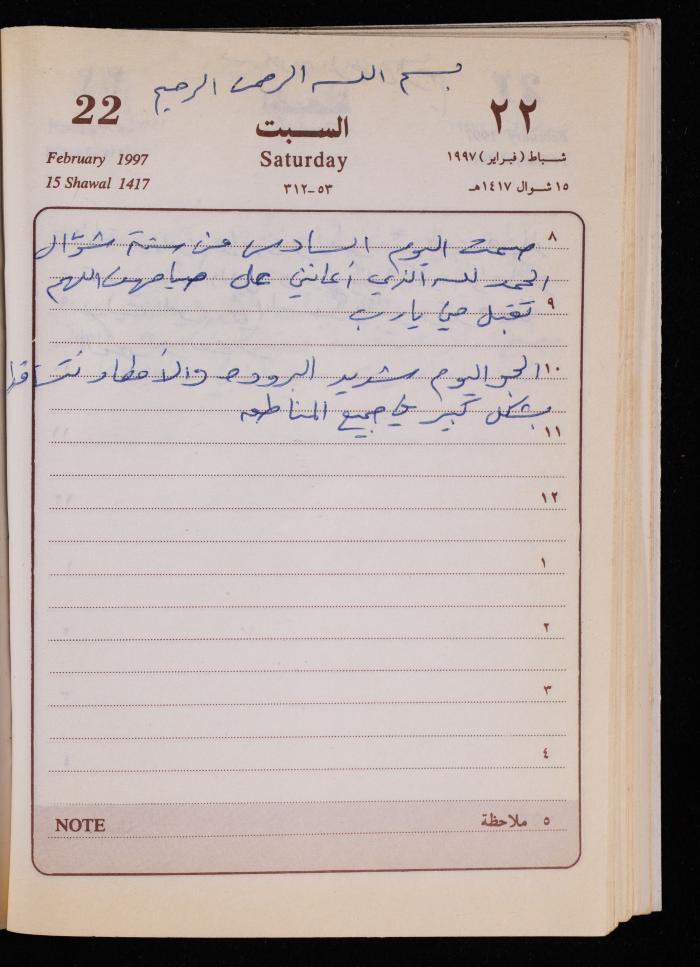 بسم الله الرحمن الرحيم
22 ٢٢
السبت
February 1997 Saturday شباط (فبراير) ١٩٩٧
15 Shawal 1417 ٥٣-٣١٢ ١٥ شوال ١٤١٧هـ
٨
صمت اليوم السادس من ستة شوّال
الحمد لله الذي أعانني على صيامهن اللهم
٩
تقبل مني يارب
١٠
الجو اليوم شديد البرودة والأمطار تتساقط
بشكل كبير في جميع المناطق
١١
١٢
١
٢
٣
٤
NOTE ٥ ملاحظة